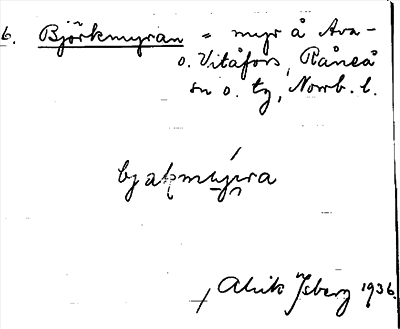 6. Björkmyran = myr å Ava-
o. Vitåfors, Råneå
sn o. tg, Norrb. l.
Alrik Isberg 1936.